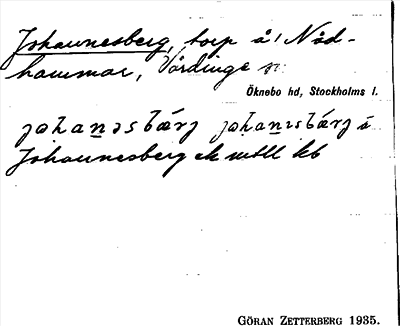 Johannesberg, torp å Nåd-
hammar, Vårdinge sn
Öknebo hd, Stockholms l.
johanəsbárj johanisbárj å
Johannesberg ek mtll kb
GÖRAN ZETTERBERG 1935.